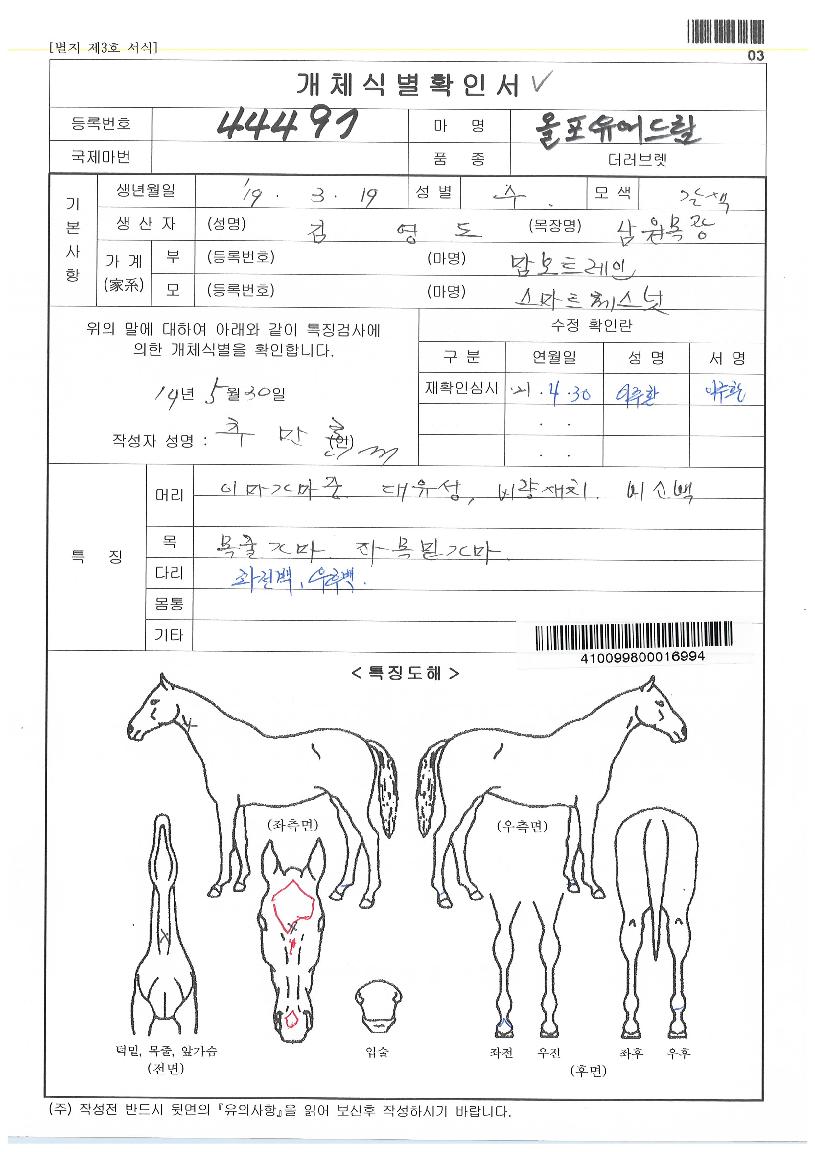 [별지 제3호 서식]
03
개체식별확인서 ✓
등록번호 444 마 명 올포유어드림
국제마번 품 종 더러브렛
기본사항
생년월일 '19 . 3 . 19 성별 수 . 모색 갈색
생산자 (성명) 김 영 도 (목장명)
가계 (家系) 부 (등록번호) (마명) 맘모트레인
모 (등록번호) (마명) 스마트체스넛
위의 말에 대하여 아래와 같이 특징검사에
의한 개체식별을 확인합니다.
19년 5월 30일
작성자 성명 : 추 만 (인)
수정 확인란
구 분 연월일 성 명 서 명
재확인심시 '21 . 4 . 30 이주환 이주환
. .
. .
특 징
머리 이마가마중. 대유성, 비량재치. 비소백
목 목줄가마. 좌목밑가마.
다리 좌전백, 우후백.
몸통
기타
410099800016994
< 특징도해 >
(좌측면) (우측면)
턱밑, 목줄, 앞가슴
(전면)
입술
좌전 우전 좌후 우후
(후면)
(주) 작성전 반드시 뒷면의 『유의사항』을 읽어 보신후 작성하시기 바랍니다.